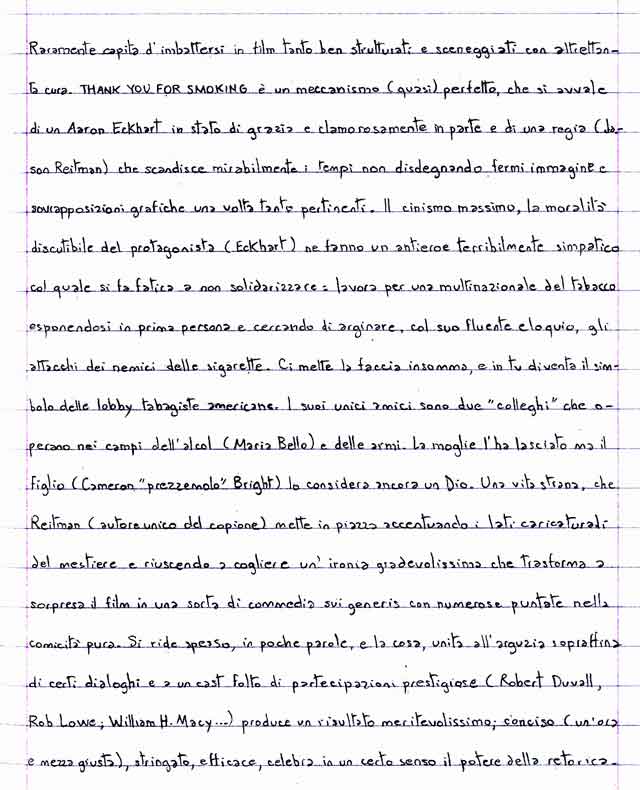 Raramente capita d'imbattersi in film tanto ben strutturati e sceneggiati con altrettan-
ta cura. THANK YOU FOR SMOKING è un meccanismo (quasi) perfetto, che si avvale
di un Aaron Eckhart in stato di grazia e clamorosamente in parte e di una regia (Ja-
son Reitman) che scandisce mirabilmente i tempi non disdegnando fermi immagine e
sovrapposizioni grafiche una volta tanto pertinenti. Il cinismo massimo, la moralità
discutibile del protagonista (Eckhart) ne fanno un antieroe terribilmente simpatico
col quale si fa fatica a non solidarizzare: lavora per una multinazionale del tabacco
esponendosi in prima persona e cercando di arginare, col suo fluente eloquio, gli
attacchi dei nemici delle sigarette. Ci mette la faccia insomma, e in tv diventa il sim-
bolo delle lobby tabagiste americane. I suoi unici amici sono due "colleghi" che o-
perano nei campi dell'alcol (Maria Bello) e delle armi. La moglie l'ha lasciato ma il
figlio (Cameron "prezzemolo" Bright) lo considera ancora un Dio. Una vita strana, che
Reitman (autore unico del copione) mette in piazza accentuando i lati caricaturali
del mestiere e riuscendo a cogliere un'ironia gradevolissima che trasforma a
sorpresa il film in una sorta di commedia sui generis con numerose puntate nella
comicità pura. Si ride spesso, in poche parole, e la cosa, unita all'arguzia sopraffina
di certi dialoghi e a un cast folto di partecipazioni prestigiose (Robert Duvall,
Rob Lowe, William H. Macy...) produce un risultato meritevolissimo; conciso (un'ora
e mezza giusta), stringato, efficace, celebra in un certo senso il potere della retorica.